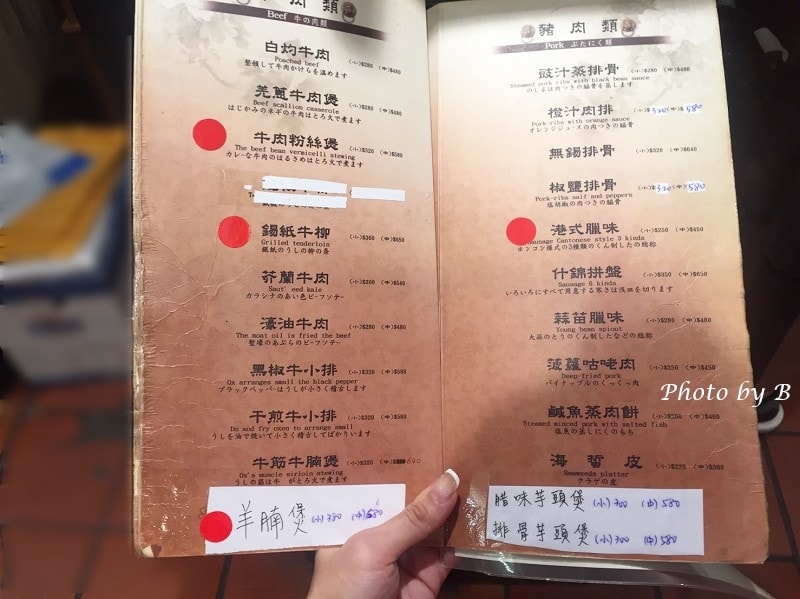 牛肉類
Beef 牛の肉類
白灼牛肉 (小)$280 (中)$480
Poached beef
整頓して牛肉かけらを温めます
羌蔥牛肉煲 (小)$280 (中)$480
Beef scallion casserole
はじかみのネギの牛肉はとろ火で煮ます
牛肉粉絲煲 (小)$320 (中)$580
The beef bean vermicelli stewing
カレーな牛肉のはるさめはとろ火で煮ます
錫紙牛柳 (小)$360 (中)$650
Grilled tenderloin
銀紙のうしの柳の条
芥蘭牛肉 (小)$300 (中)$540
Saut' eed kale
カラシナのあい色ビーフソテー
濠油牛肉 (小)$280 (中)$480
The moat oil is fried the beef
塹壕のあぶらのビーフソテー
黑椒牛小排 (小)$320 (中)$580
Ox arranges small the black pepper
ブラックペッパーはうしが小さく稽古します
干煎牛小排 (小)$320 (中)$580
Do and fry oxen to arrange small
うしを油で焼いて小さく稽古してばかりいます
牛筋牛腩煲 (小)$320 (中) 640
Ox's muscle sirloin stewing
うしの筋は牛 がとろ火で煮ます
羊腩煲 (小)380 (中)680
豬肉類
Pork ぶたにく類
豉汁蒸排骨 (小)$280 (中)$480
Steamed pork ribs with black bean sauce
のしるは肉つきの脇骨を蒸します
橙汁肉排 (小)$320 (中)$580
Pork-ribs with orange sauce
オレンジジュースの肉つきの脇骨
無錫排骨 (小)$320 (中)$640
椒鹽排骨 (小)$320 (中)$580
Pork-ribs salf and peppers
塩胡椒の肉つきの脇骨
港式臘味 (小)$250 (中)$450
Sausage Cantonese style 3 kinds
ホンコン様式の3種類のくん制したの総称
什錦拼盤 (小)$350 (中)$650
Sausage 6 kinds
いろいろにすべて用意する寒さは浅皿を切ります
蒜苗臘味 (小)$280 (中)$480
Young bean spiout
大蒜のとうのくん制したなどの総称
菠蘿咕老肉 (小)$250 (中)$450
Deep-fried pork
パイナップルのくっくっ肉
鹹魚蒸肉餅 (小)$260 (中)$480
Steamed minced pork with salted fish
塩魚の蒸しにくのもち
海蜇皮 (小)$220 (中)$380
Seaweeds platter
クラゲの皮
腊味芋頭煲 (小)300 (中)580
排骨芋頭煲 (小)300 (中)580
Photo by B